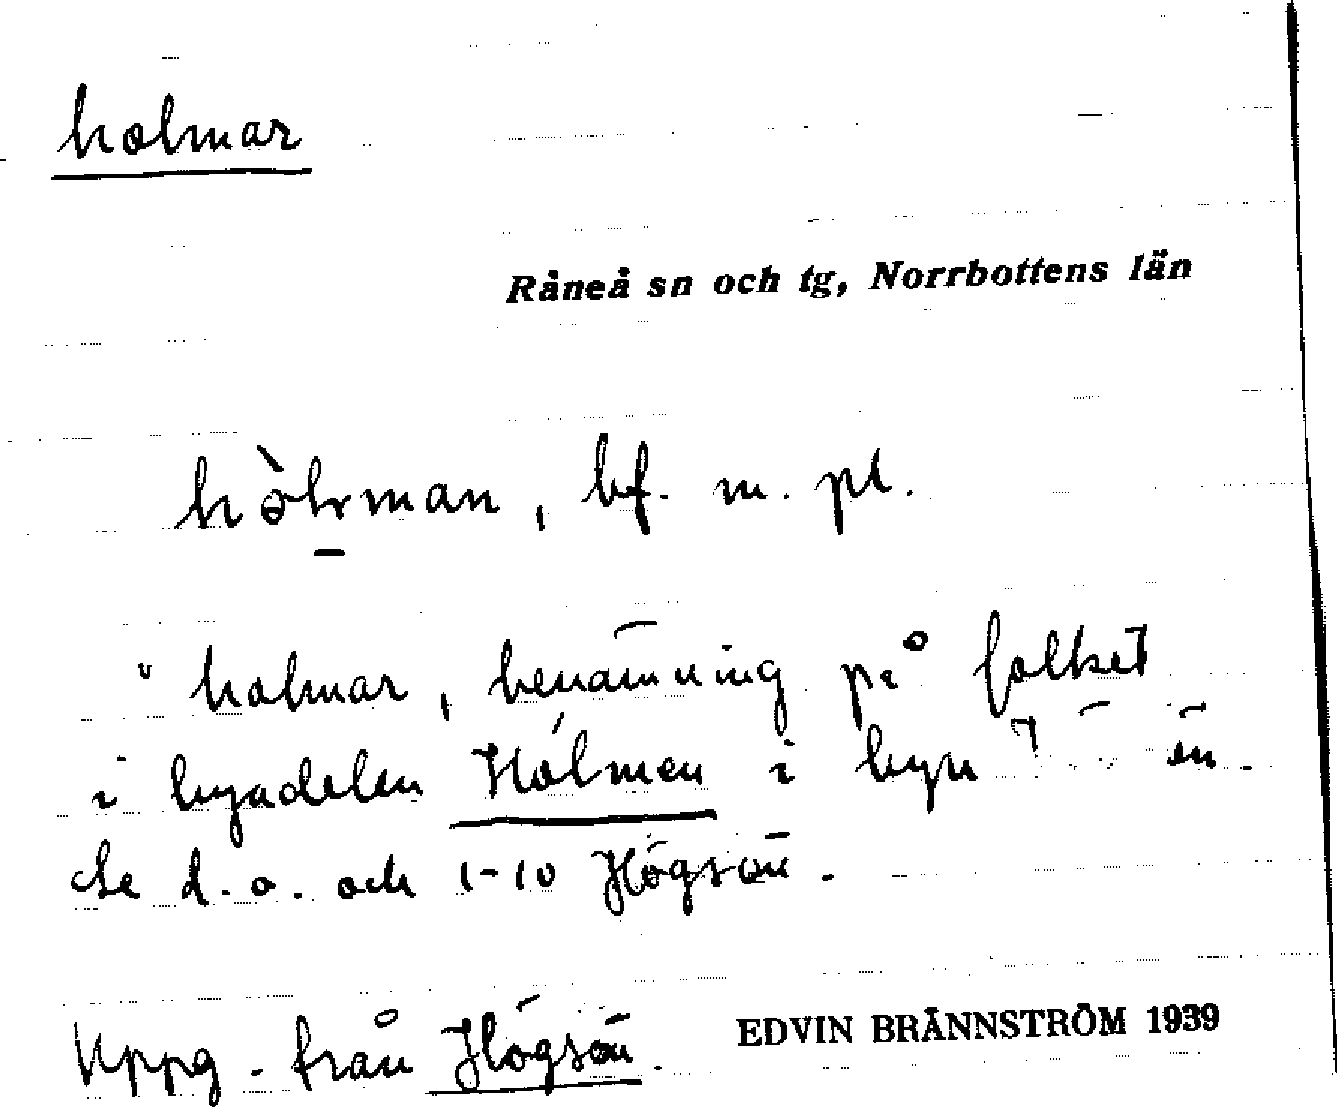 holmar
Råneå sn och tg, Norrbottens län
hòlman, bf. m. pl.
" holmar, benämning på folket
i byadelen Holmen i byn
Se d.o. och 1-10 Högsön.
Uppg. från Högsön.
EDVIN BRÄNNSTRÖM 1939